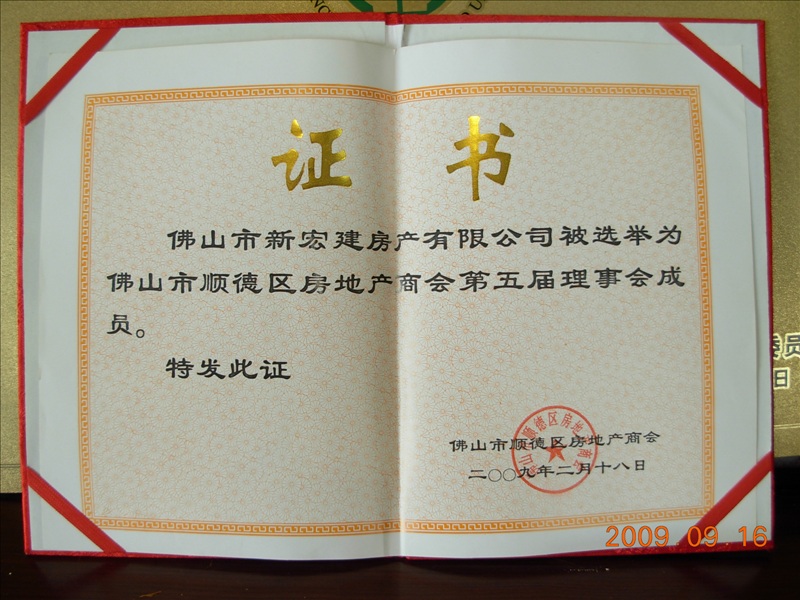 证 书
佛山市新宏建房产有限公司被选举为
佛山市顺德区房地产商会第五届理事会成
员。
特发此证
佛山市顺德区房地产商会
二〇〇九年二月十八日
佛山市顺德区房地产商会
委员
日
2009.09.16